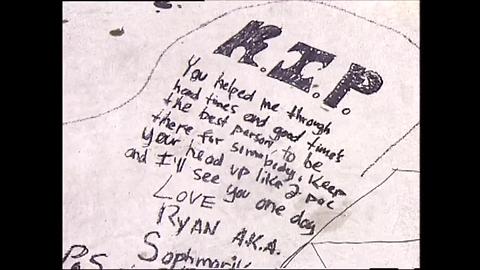 R.I.P.
You helped me through
hard times and good times
the best person, to be
there for somebody. Keep
your head up like 2 pac
and I'll see you one day
LOVE
RYAN A.K.A.
P.S